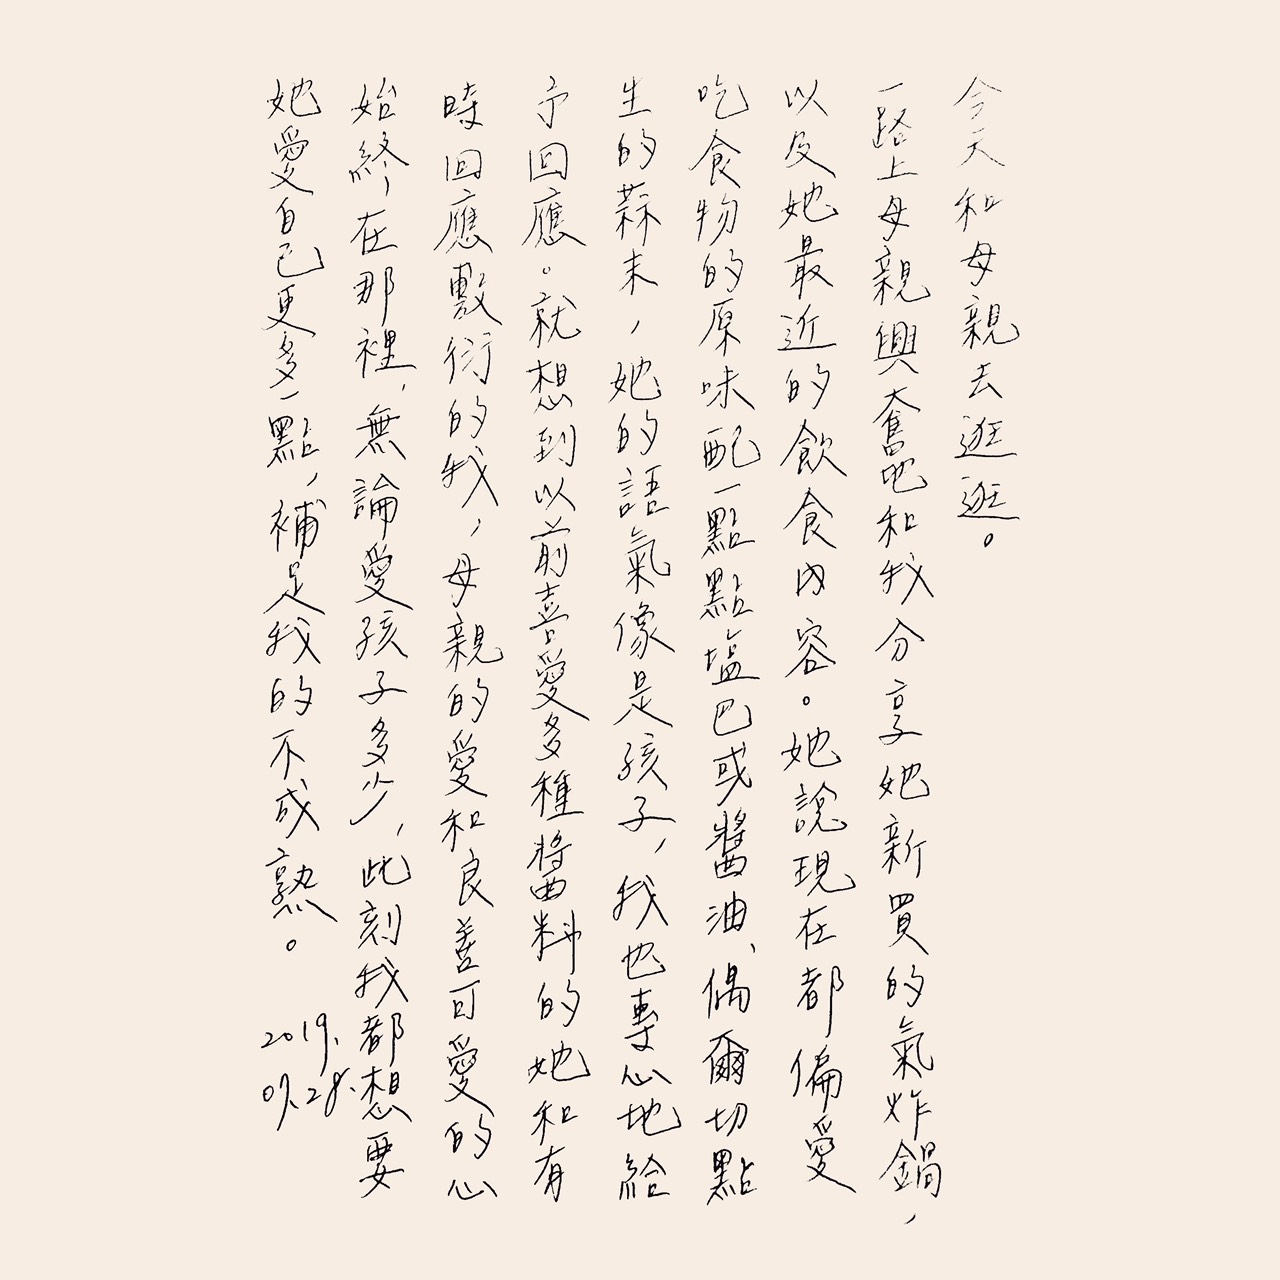 今天和母親去逛逛。
一路上母親興奮地和我分享她新買的氣炸鍋，
以及她最近的飲食內容。她說現在都偏愛
吃食物的原味配一點點塩巴或醬油、偶爾切點
生的蒜末，她的語氣像是孩子，我也專心地給
予回應。就想到以前喜愛多種醬料的她和有
時回應敷衍的我，母親的愛和良善可愛的心
始終，在那裡，無論愛孩子多少，此刻我都想要
她愛自己更多一點，補足我的不成熟。
2019.
07.28.